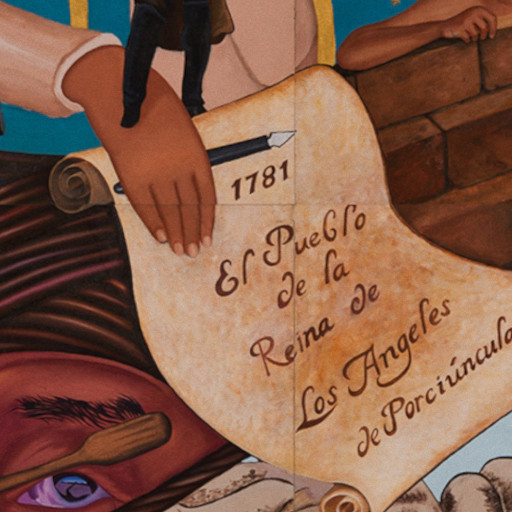 1781
El Pueblo
de la
Reina de
Los Angeles
de Porciúncula